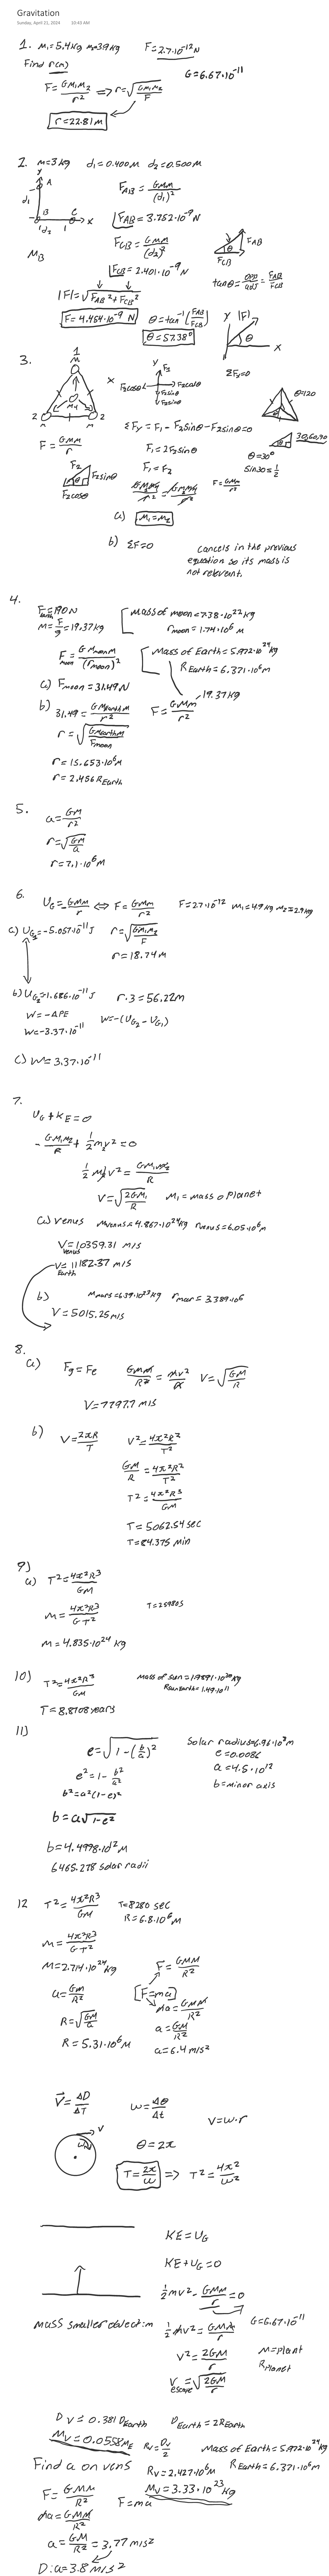 Gravitation
Sunday, April 21, 2024 10:43 AM
1. M₁=5.4Kg m₂=3.9Kg F=2.7·10⁻¹²N
Find r(m) G=6.67·10⁻¹¹
F=GM₁M₂/r² => r=√(GM₁M₂/F)
r=22.81M
2. M=3Kg d₁=0.400M d₂=0.500M
y
A
d₁
B C x
d₂
M_B
F_AB=GMM/(d₁)²
F_AB=3.752·10⁻⁹N
F_CB=GMM/(d₂)²
F_CB=2.401·10⁻⁹N
F_AB
F_CB
tanθ=opp/adj=F_AB/F_CB
|F|=√(F_AB²+F_CB²)
F=4.454·10⁻⁹ N θ=tan⁻¹(F_AB/F_CB)
θ=57.38°
y |F|
θ
x
3. ΣFy=0
1
M
M₄
2 M M 2
x
y F₁
F₂cosθ F₂cosθ
F₂sinθ
F₂sinθ
θ=120
30,60,90
θ=30°
Sin30=1/2
ΣFy=F₁-F₂sinθ-F₂sinθ=0
F=GMM/r²
F₁=2F₂sinθ
F₁=F₂
F₂ F₂sinθ
F₂cosθ
F=GMM/r²
a) M₁=M₂
b) ΣF=0 cancels in the previous
equation so its mass is
not relevent.
4.
F_earth=190N
M=F/g=19.37Kg
Mass of moon=7.38·10²²Kg
r_moon=1.74·10⁶ M
Mass of Earth=5.972·10²⁴Kg
R_Earth=6.371·10⁶m
F_moon=GM_moonM/(r_moon)²
19.37Kg
a) F_moon=31.49N
b) 31.49=GM_earthM/r² F=GMM/r²
r=√(GM_earthM/F_moon)
r=15.653·10⁶M
r=2.456R_Earth
5.
a=GM/r²
r=√(GM/a)
r=7.1·10⁶M
6.
U_G=-GMM/r ⇔ F=GMM/r² F=2.7·10⁻¹² M₁=4.9Kg M₂=2.9Kg
a) U_G₂=-5.057·10⁻¹¹J r=√(GM₁M₂/F)
r=18.74M
b) U_G₂=1.686·10⁻¹¹J r·3=56.22m
W=-ΔPE W=-(U_G₂-U_G₁)
W=-3.37·10⁻¹¹
c) W=3.37·10⁻¹¹
7.
U_G+K_E=0
-GM₁M₂/R+1/2m₂v²=0
1/2M₂v²=GM₁M₂/R
V=√(2GM₁/R) M₁=mass o planet
a) Venus M_venus=4.867·10²⁴Kg r_venus=6.05·10⁶m
V_venus=10359.31 m/s
V_Earth=11182.37 m/s
b) M_mars=6.39·10²³Kg r_mar=3.389·10⁶
V=5015.25m/s
8.
a) Fg=Fc GMM/R²=mv²/R V=√(GM/R)
V=7797.7 m/s
b) V=2πR/T V²=4π²R²/T²
GM/R=4π²R²/T²
T²=4π²R³/GM
T=5062.54sec
T=84.375 min
9)
a) T²=4π²R³/GM
T=25980s
M=4π²R³/G·T²
M=4.835·10²⁴ Kg
10) T²=4π²R³/GM Mass of sun=1.9891·10³⁰Kg
T=8.8708years
11)
e=√(1-(b/a)²) Solar radius=6.96·10⁸m
e=0.0086
a=4.5·10¹²
b=minor axis
e²=1-b²/a²
b²=a²(1-e)²
b=a√(1-e²)
b=4.4998·10¹²M
6465.278 solar radii
12 T²=4π²R³/GM T=8280 sec
R=6.8·10⁶M
M=4π²R³/G·T²
M=2.714·10²⁴Kg F=GMM/R²
a=GM/R² [F=ma]
ma=GMM/R²
R=√(GM/a) a=GM/R²
R=5.31·10⁶M a=6.4m/s²
V=ΔD/ΔT ω=Δθ/Δt
V=ω·r
V
ω
θ=2π
T=2π/ω => T²=4π²/ω²
KE=U_G
KE+U_G=0
1/2mv²-GMm/r=0
mass smaller object:m 1/2mv²=GMm/r G=6.67·10⁻¹¹
V²=2GM/r M=plant
R_planet
V_escape=√(2GM/r)
D_V=0.381D_Earth D_Earth=2R_Earth
M_V=0.0558M_E R_V=D_V/2 Mass of Earth=5.972·10²⁴Kg
R_V=2.427·10⁶m R_Earth=6.371·10⁶m
M_V=3.33·10²³Kg
Find a on vens
F=GMM/R² F=ma
ma=GMM/R²
a=GM/R²=3.77m/s²
D:a=3.8m/s²